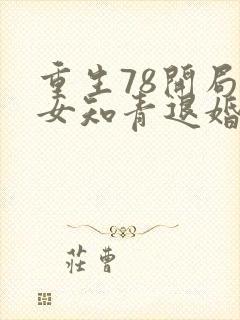 重生78開局
女知青退婚
莊曹